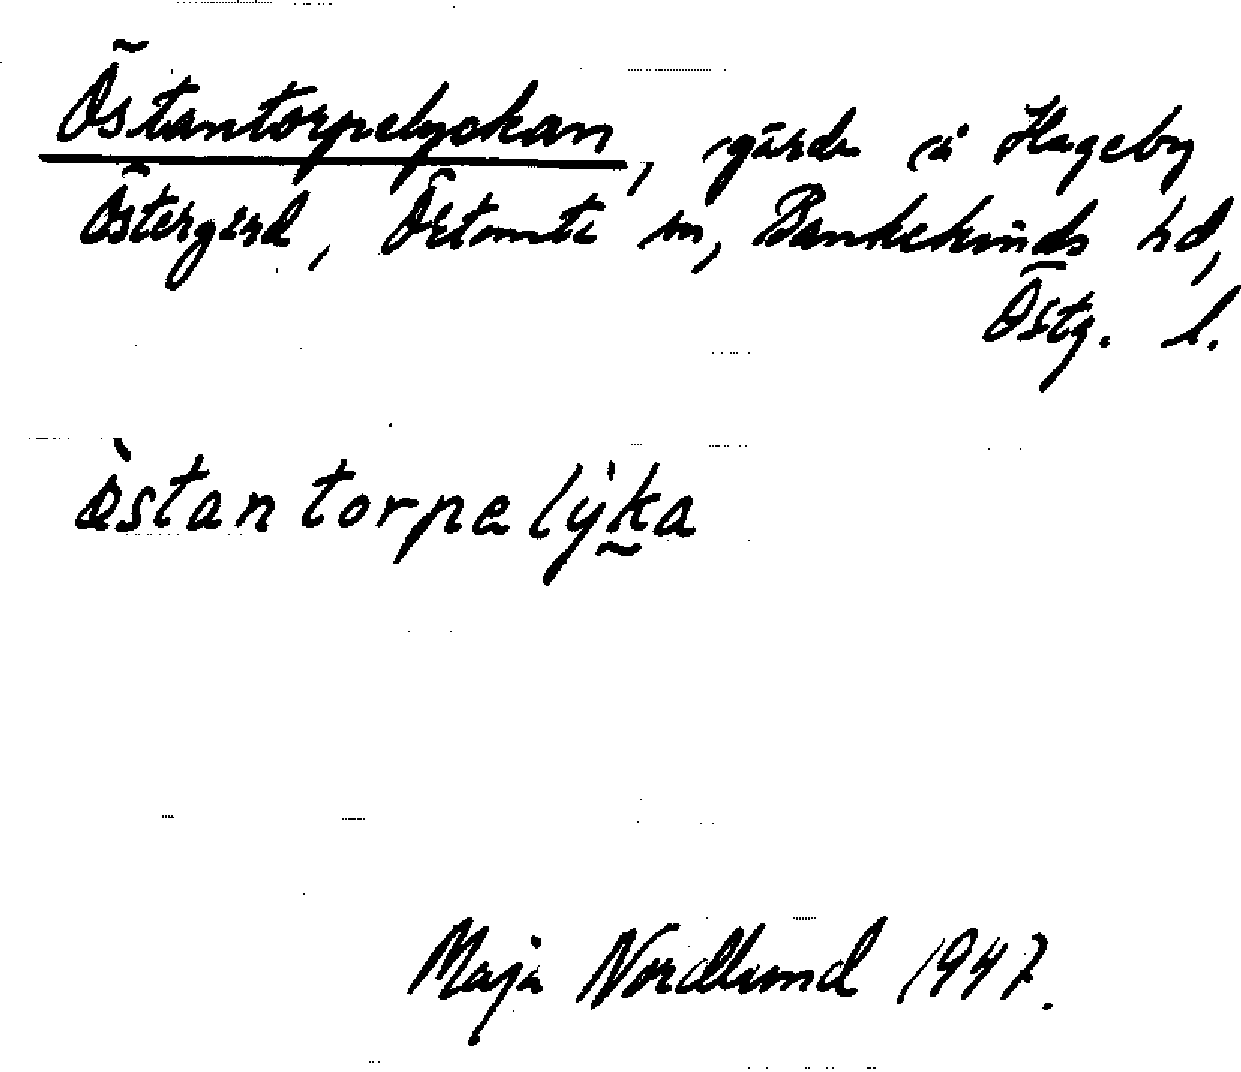 Östantorpelyckan, gärde å Hageby
Östergård, Örtomta sn, Bankekinds hd,
Östg. l.
östantorpelyka
Maja Nordlund 1947.